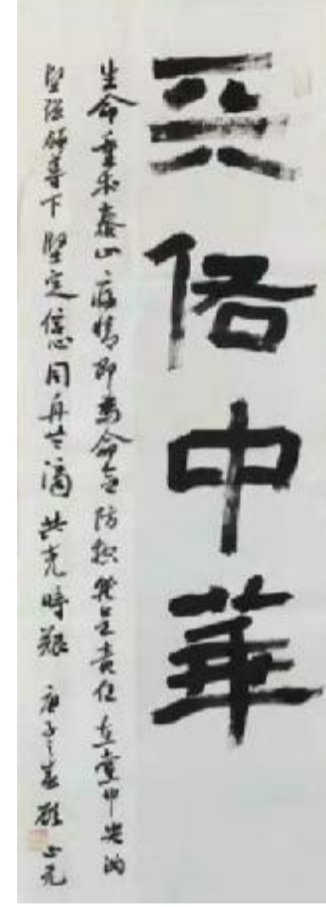 兲佑中華
生命重於泰山疫情即是命令防控就是責任在黨中央的
堅強領導下堅定信心同舟共濟共克時艱庚子之春